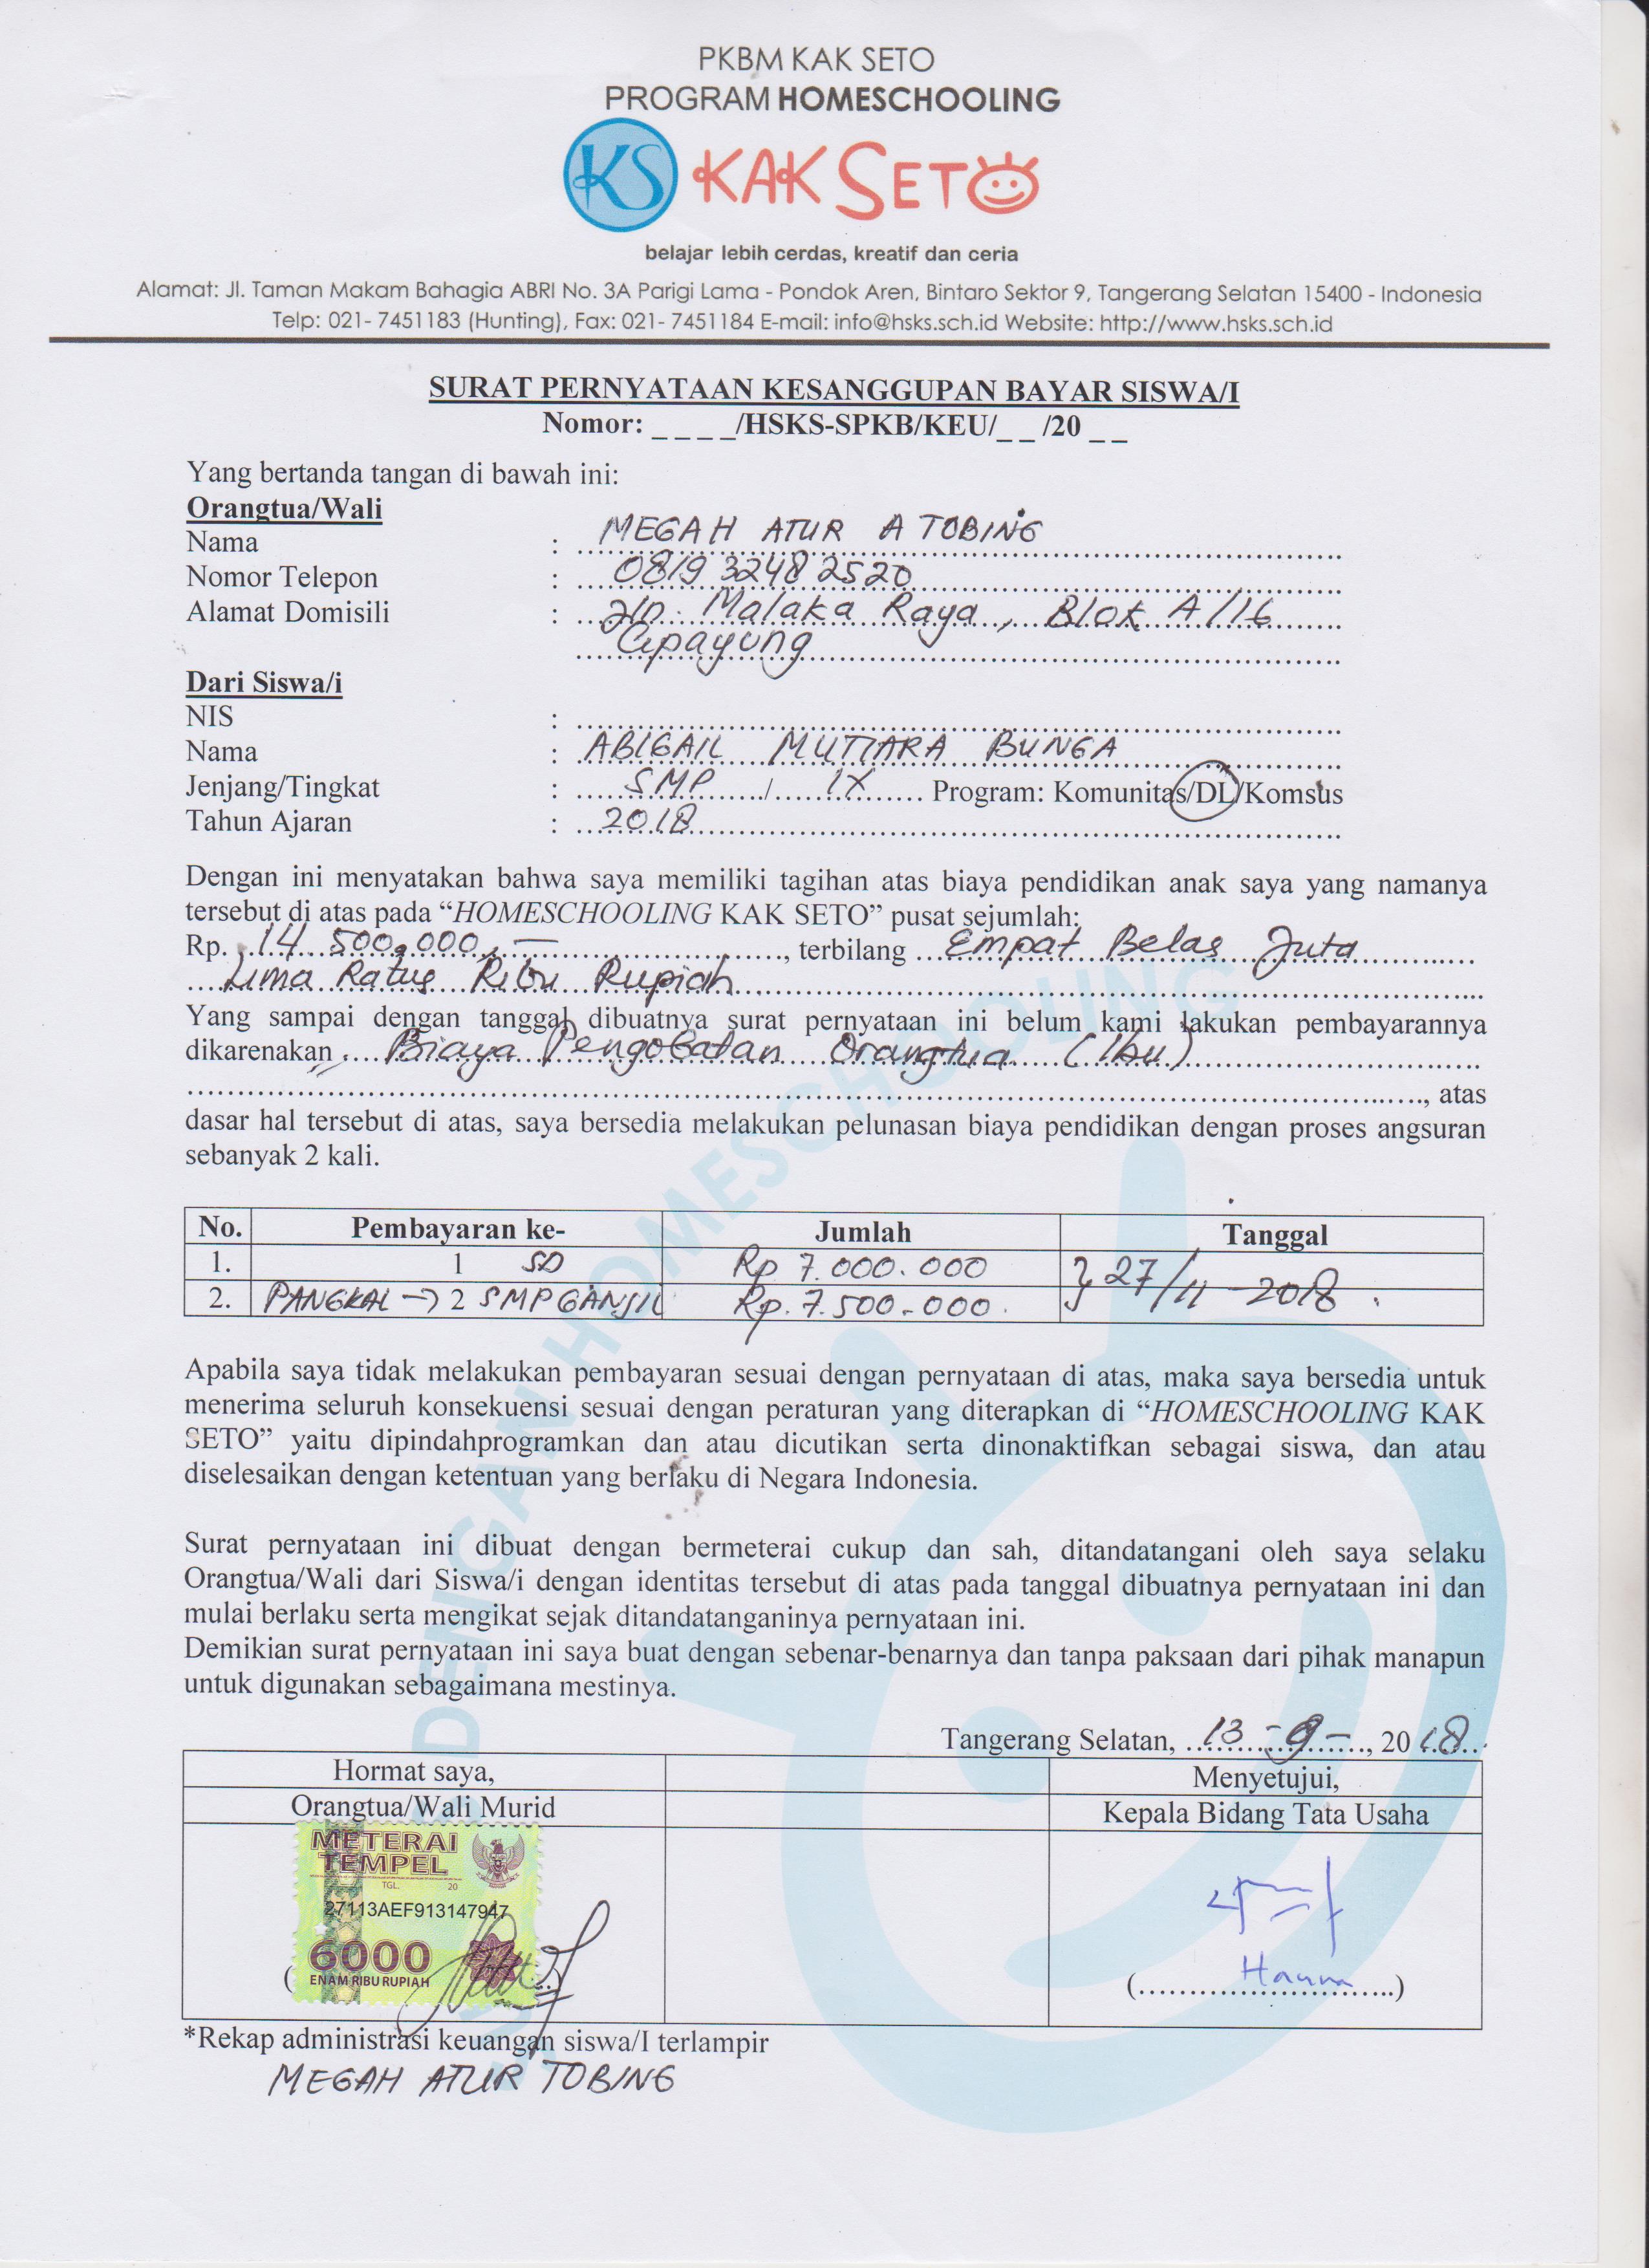 PKBM KAK SETO
PROGRAM HOMESCHOOLING
KS KAK SETO
belajar lebih cerdas, kreatif dan ceria
Alamat: Jl. Taman Makam Bahagia ABRI No. 3A Parigi Lama - Pondok Aren, Bintaro Sektor 9, Tangerang Selatan 15400 - Indonesia
Telp: 021- 7451183 (Hunting), Fax: 021- 7451184 E-mail: info@hsks.sch.id Website: http://www.hsks.sch.id
SURAT PERNYATAAN KESANGGUPAN BAYAR SISWA/I
Nomor: _ _ _ _/HSKS-SPKB/KEU/_ _ /20 _ _
Yang bertanda tangan di bawah ini:
Orangtua/Wali
Nama : MEGAH ATUR A TOBING
Nomor Telepon : 0819 3248 2520
Alamat Domisili : Jln. Malaka Raya, Blok A/16
Cipayung
Dari Siswa/i
NIS :
Nama : ABIGAIL MUTIARA BUNGA
Jenjang/Tingkat : SMP / IX Program: Komunitas/DL/Komsus
Tahun Ajaran : 2018
Dengan ini menyatakan bahwa saya memiliki tagihan atas biaya pendidikan anak saya yang namanya
tersebut di atas pada “HOMESCHOOLING KAK SETO” pusat sejumlah:
Rp. 14.500.000,- , terbilang Empat Belas Juta
Lima Ratus Ribu Rupiah
Yang sampai dengan tanggal dibuatnya surat pernyataan ini belum kami lakukan pembayarannya
dikarenakan Biaya Pengobatan Orangtua (Ibu)
, atas
dasar hal tersebut di atas, saya bersedia melakukan pelunasan biaya pendidikan dengan proses angsuran
sebanyak 2 kali.
No. Pembayaran ke- Jumlah Tanggal
1. 1 SD Rp 7.000.000 } 27/11-2018.
2. PANGKAL → 2 SMP GANJIL Rp. 7.500.000.
Apabila saya tidak melakukan pembayaran sesuai dengan pernyataan di atas, maka saya bersedia untuk
menerima seluruh konsekuensi sesuai dengan peraturan yang diterapkan di “HOMESCHOOLING KAK
SETO” yaitu dipindahprogramkan dan atau dicutikan serta dinonaktifkan sebagai siswa, dan atau
diselesaikan dengan ketentuan yang berlaku di Negara Indonesia.
Surat pernyataan ini dibuat dengan bermeterai cukup dan sah, ditandatangani oleh saya selaku
Orangtua/Wali dari Siswa/i dengan identitas tersebut di atas pada tanggal dibuatnya pernyataan ini dan
mulai berlaku serta mengikat sejak ditandatanganinya pernyataan ini.
Demikian surat pernyataan ini saya buat dengan sebenar-benarnya dan tanpa paksaan dari pihak manapun
untuk digunakan sebagaimana mestinya.
Tangerang Selatan, 13 - 9 - , 2018
Hormat saya, Menyetujui,
Orangtua/Wali Murid Kepala Bidang Tata Usaha
METERAI
TEMPEL
TGL. 20
27113AEF913147947
6000
ENAM RIBU RUPIAH
(Hanum)
*Rekap administrasi keuangan siswa/I terlampir
MEGAH ATUR TOBING
DENGAN HOMESCHOOLING